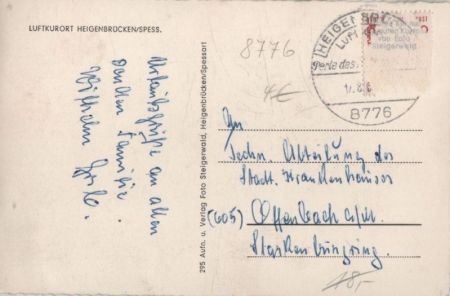 LUFTKURORT HEIGENBRÜCKEN/SPESS.
8776
4€
Urlaubsgrüße an allen
danken Familie
Wilhelm
295 Aufn. u. Verlag Foto Steigerwald, Heigenbrücken/Spessart
HEIGENBR
LUF
Perle des
17. 8.
8776
von Foto
Steigerwald
An
Techn. Abteilung des
Stadt. Krankenhauses
(605) Offenbach a/M.
Starkenburgring.
18,-